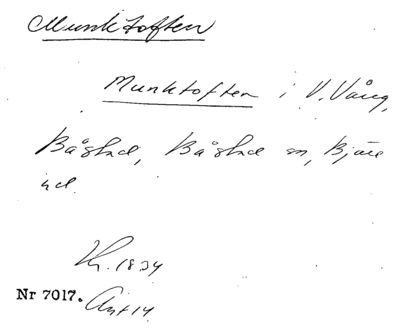 Munktoften
Munktoften i V. Vång,
Båstad, Båstad sn, Bjäre
hd.
1834
Nr 7017.